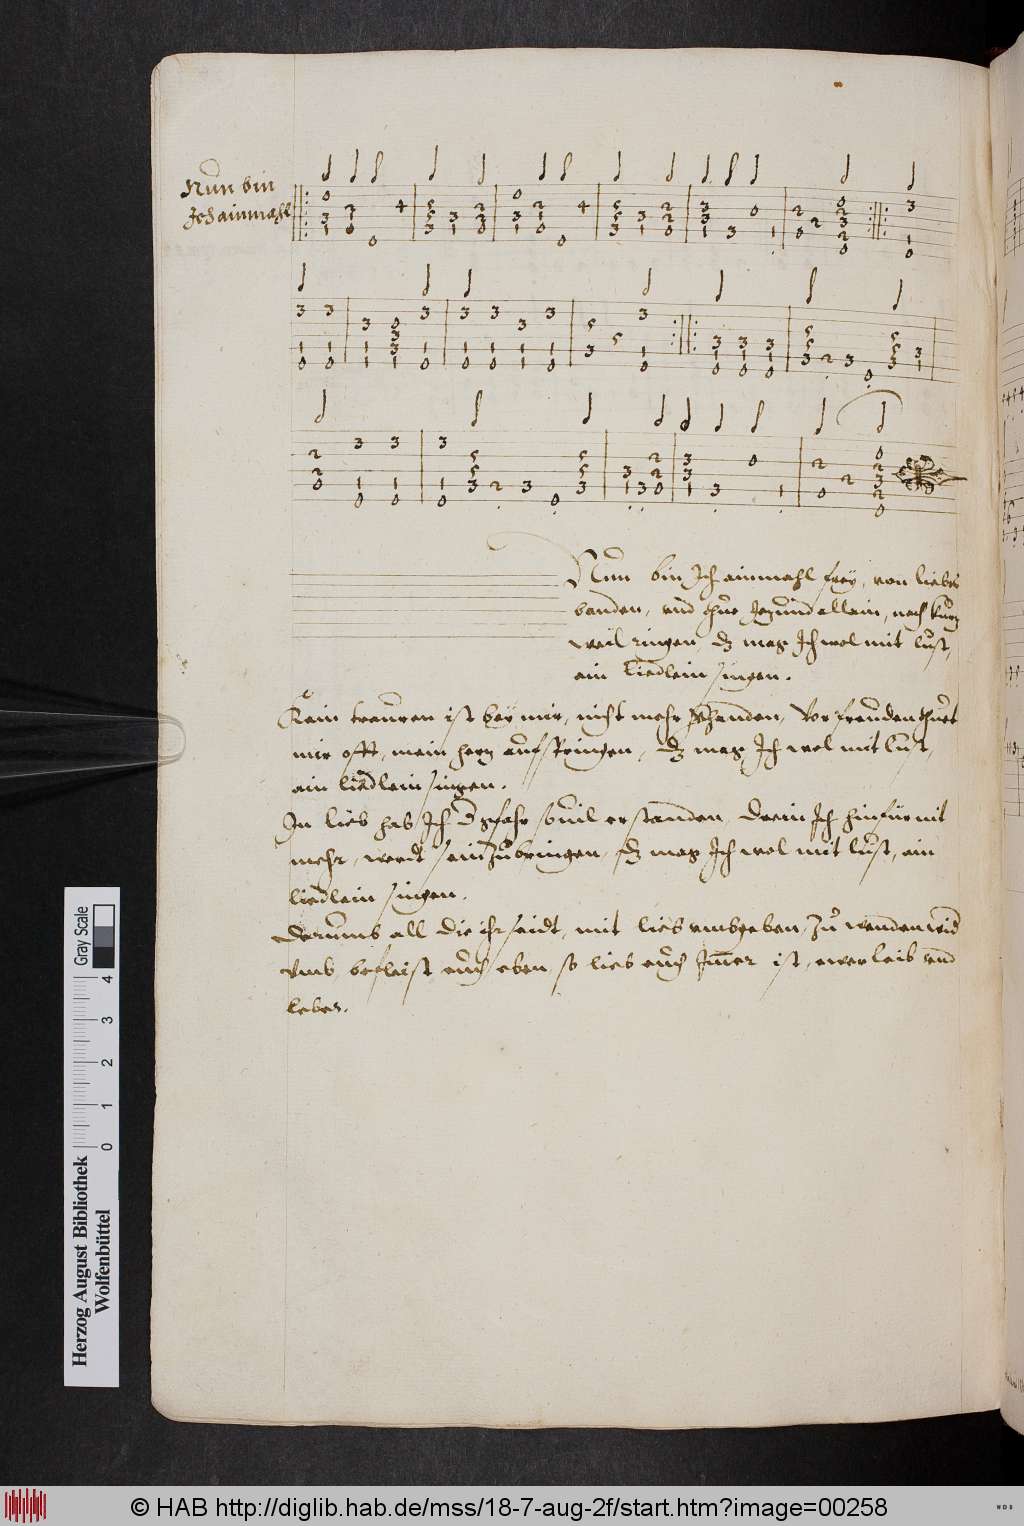 Nun bin
Ich ainmahl
Nun bin Ich ainmahl frey, von liebes
banden, vnd thue Jezund allein, nach kurz
weil ringen, dz mag Ich wol mit lust,
ain liedlein singen.
Kain trauren ist bey mir, nicht mehr vorhanden, Vor freuden thuet
mir offt, mein herz aufspringen, dz mag Ich wol mit lust,
ain liedlein singen.
In lieb hab Ich gfahr souil erstanden, darin Ich hinfür nit
mehr, werdt sein zubringen, dz mag Ich wol mit lust, ain
liedlein singen.
Darumb all die ihr seidt, mit lieb vmbgeben, zu wenden wid
vmb, befleist euch eben, so lieb euch Immer ist, ewer leib vnd
leben.
Herzog August Bibliothek
Wolfenbüttel
0 1 2 3 4
Gray Scale
© HAB http://diglib.hab.de/mss/18-7-aug-2f/start.htm?image=00258